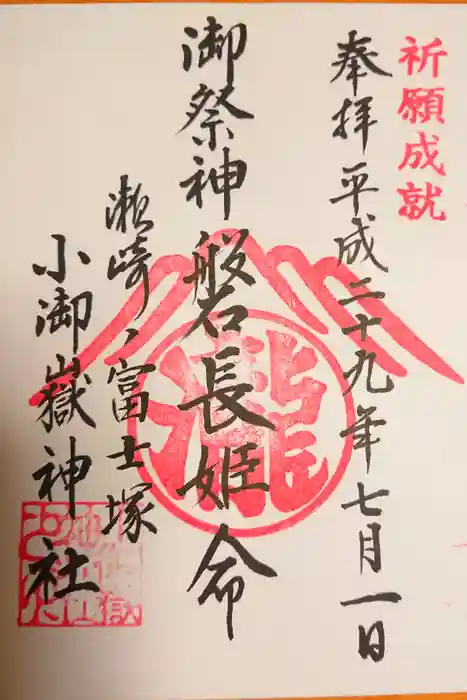 祈願成就
奉拝 平成二十九年七月一日
御祭神 磐長姫命
瀬崎、富士塚
小御嶽神社
瀧